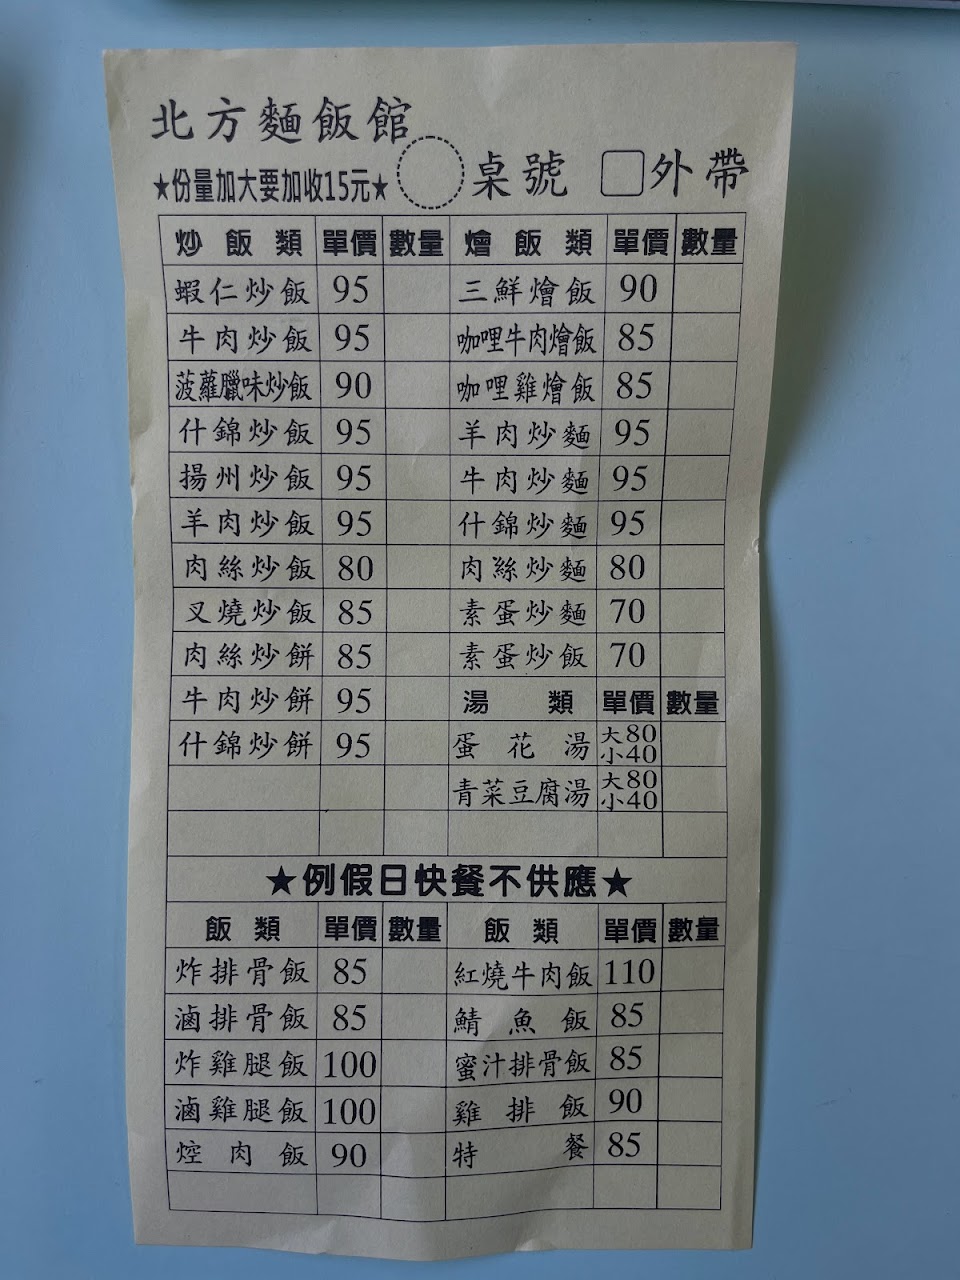 北方麵飯館
★份量加大要加收15元★ 桌號 外帶
炒飯類 單價 數量 燴飯類 單價 數量
蝦仁炒飯 95 三鮮燴飯 90
牛肉炒飯 95 咖哩牛肉燴飯 85
菠蘿臘味炒飯 90 咖哩雞燴飯 85
什錦炒飯 95 羊肉炒麵 95
揚州炒飯 95 牛肉炒麵 95
羊肉炒飯 95 什錦炒麵 95
肉絲炒飯 80 肉絲炒麵 80
叉燒炒飯 85 素蛋炒麵 70
肉絲炒餅 85 素蛋炒飯 70
牛肉炒餅 95 湯類 單價 數量
什錦炒餅 95 蛋花湯 大80 小40
青菜豆腐湯 大80 小40
★例假日快餐不供應★
飯類 單價 數量 飯類 單價 數量
炸排骨飯 85 紅燒牛肉飯 110
滷排骨飯 85 鯖魚飯 85
炸雞腿飯 100 蜜汁排骨飯 85
滷雞腿飯 100 雞排飯 90
焢肉飯 90 特餐 85